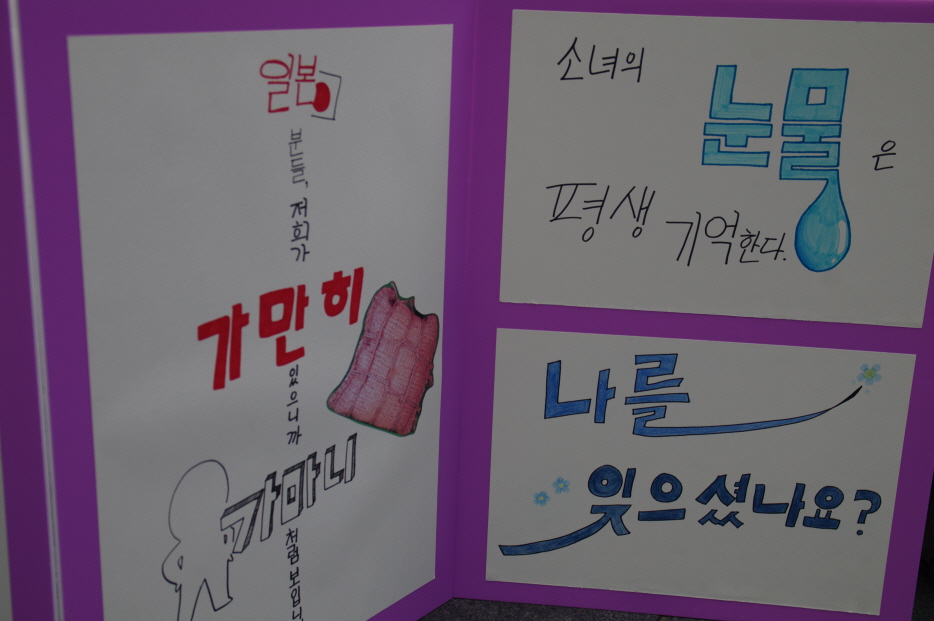 일본
분들, 저희가
가만히
있으니까
가마니
처럼 보입니
소녀의
눈물은
평생 기억한다.
나를
잊으셨나요?